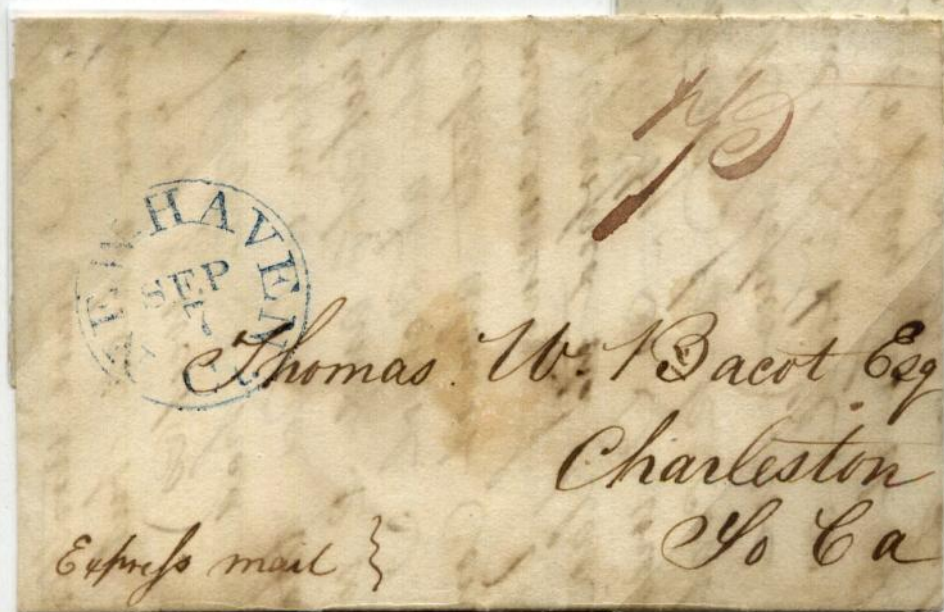 75
NEW HAVEN
SEP
7
Thomas W. Bacot Esq
Charleston
So Ca
Express mail